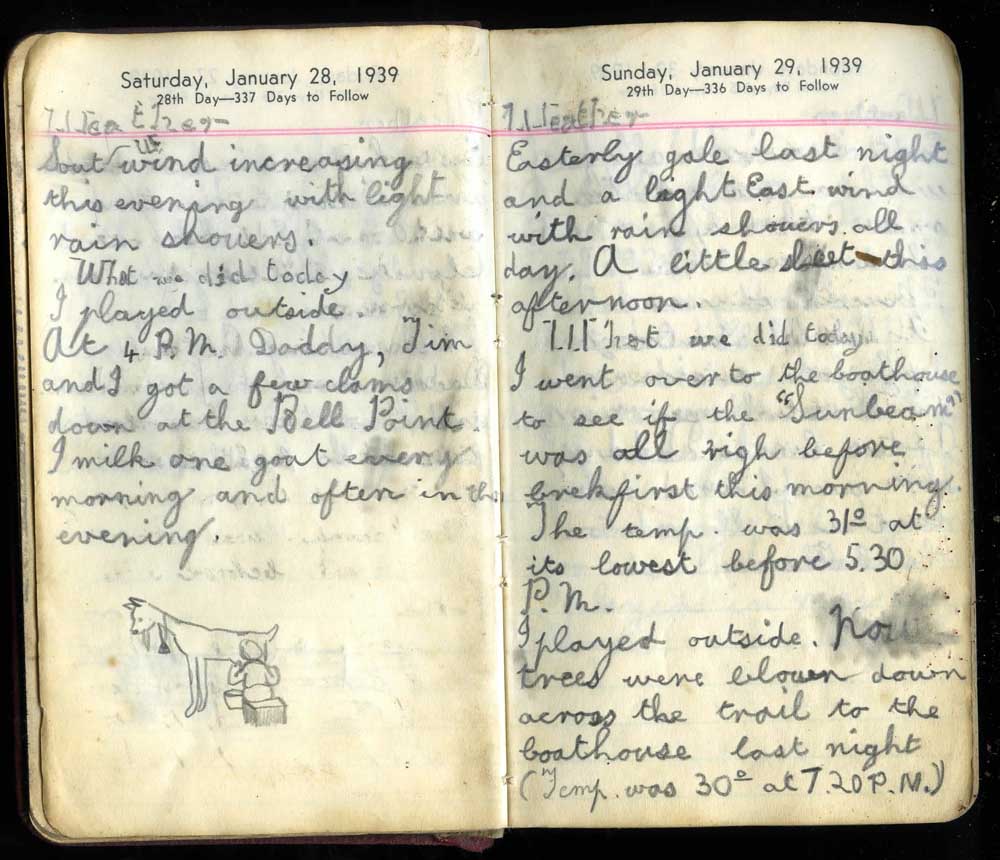 Saturday, January 28, 1939
28th Day—337 Days to Follow
Weather
Sout We wind increasing
this evening with light
rain showers.
What we did today
I played outside.
At 4 P.M. Daddy, Tim
and I got a few clams
down at the Bell Point
I milk one goat every
morning and often in the
evening.
Sunday, January 29, 1939
29th Day—336 Days to Follow
Weather
Easterly gale last night
and a light East wind
with rain showers all
day. A little sleet this
afternoon.
What we did today
I went over to the boathouse
to see if the "Sunbeam"
was all righ before
brekfirst this morning.
The temp. was 31º at
its lowest before 5.30
P.M.
I played outside. No
trees were blown down
across the trail to the
boathouse last night
(Temp. was 30º at 7.20 P.M.)